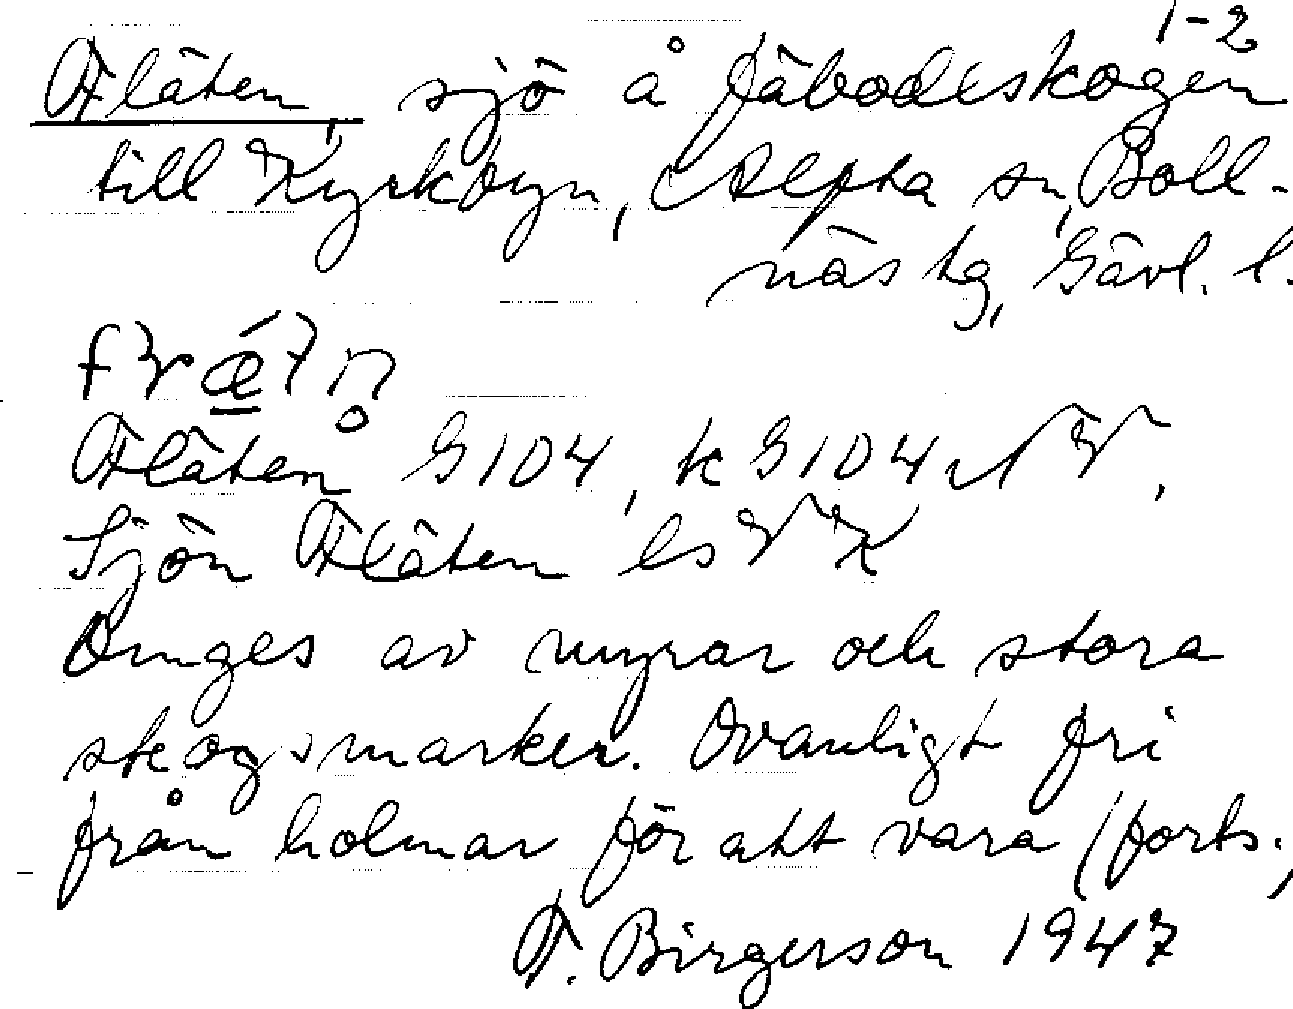 1-2
Fläten, sjö å fäbodeskogen
till Kyrkbyn, Alfta sn, Boll-
näs tg, Gävl. l.
Fläten G104, k G104 NV,
Sjön Fläten ls VK
Omges av myrar och stora
skogsmarker. Ovanligt fri
från holmar för att vara (forts.)
F. Birgerson 1947